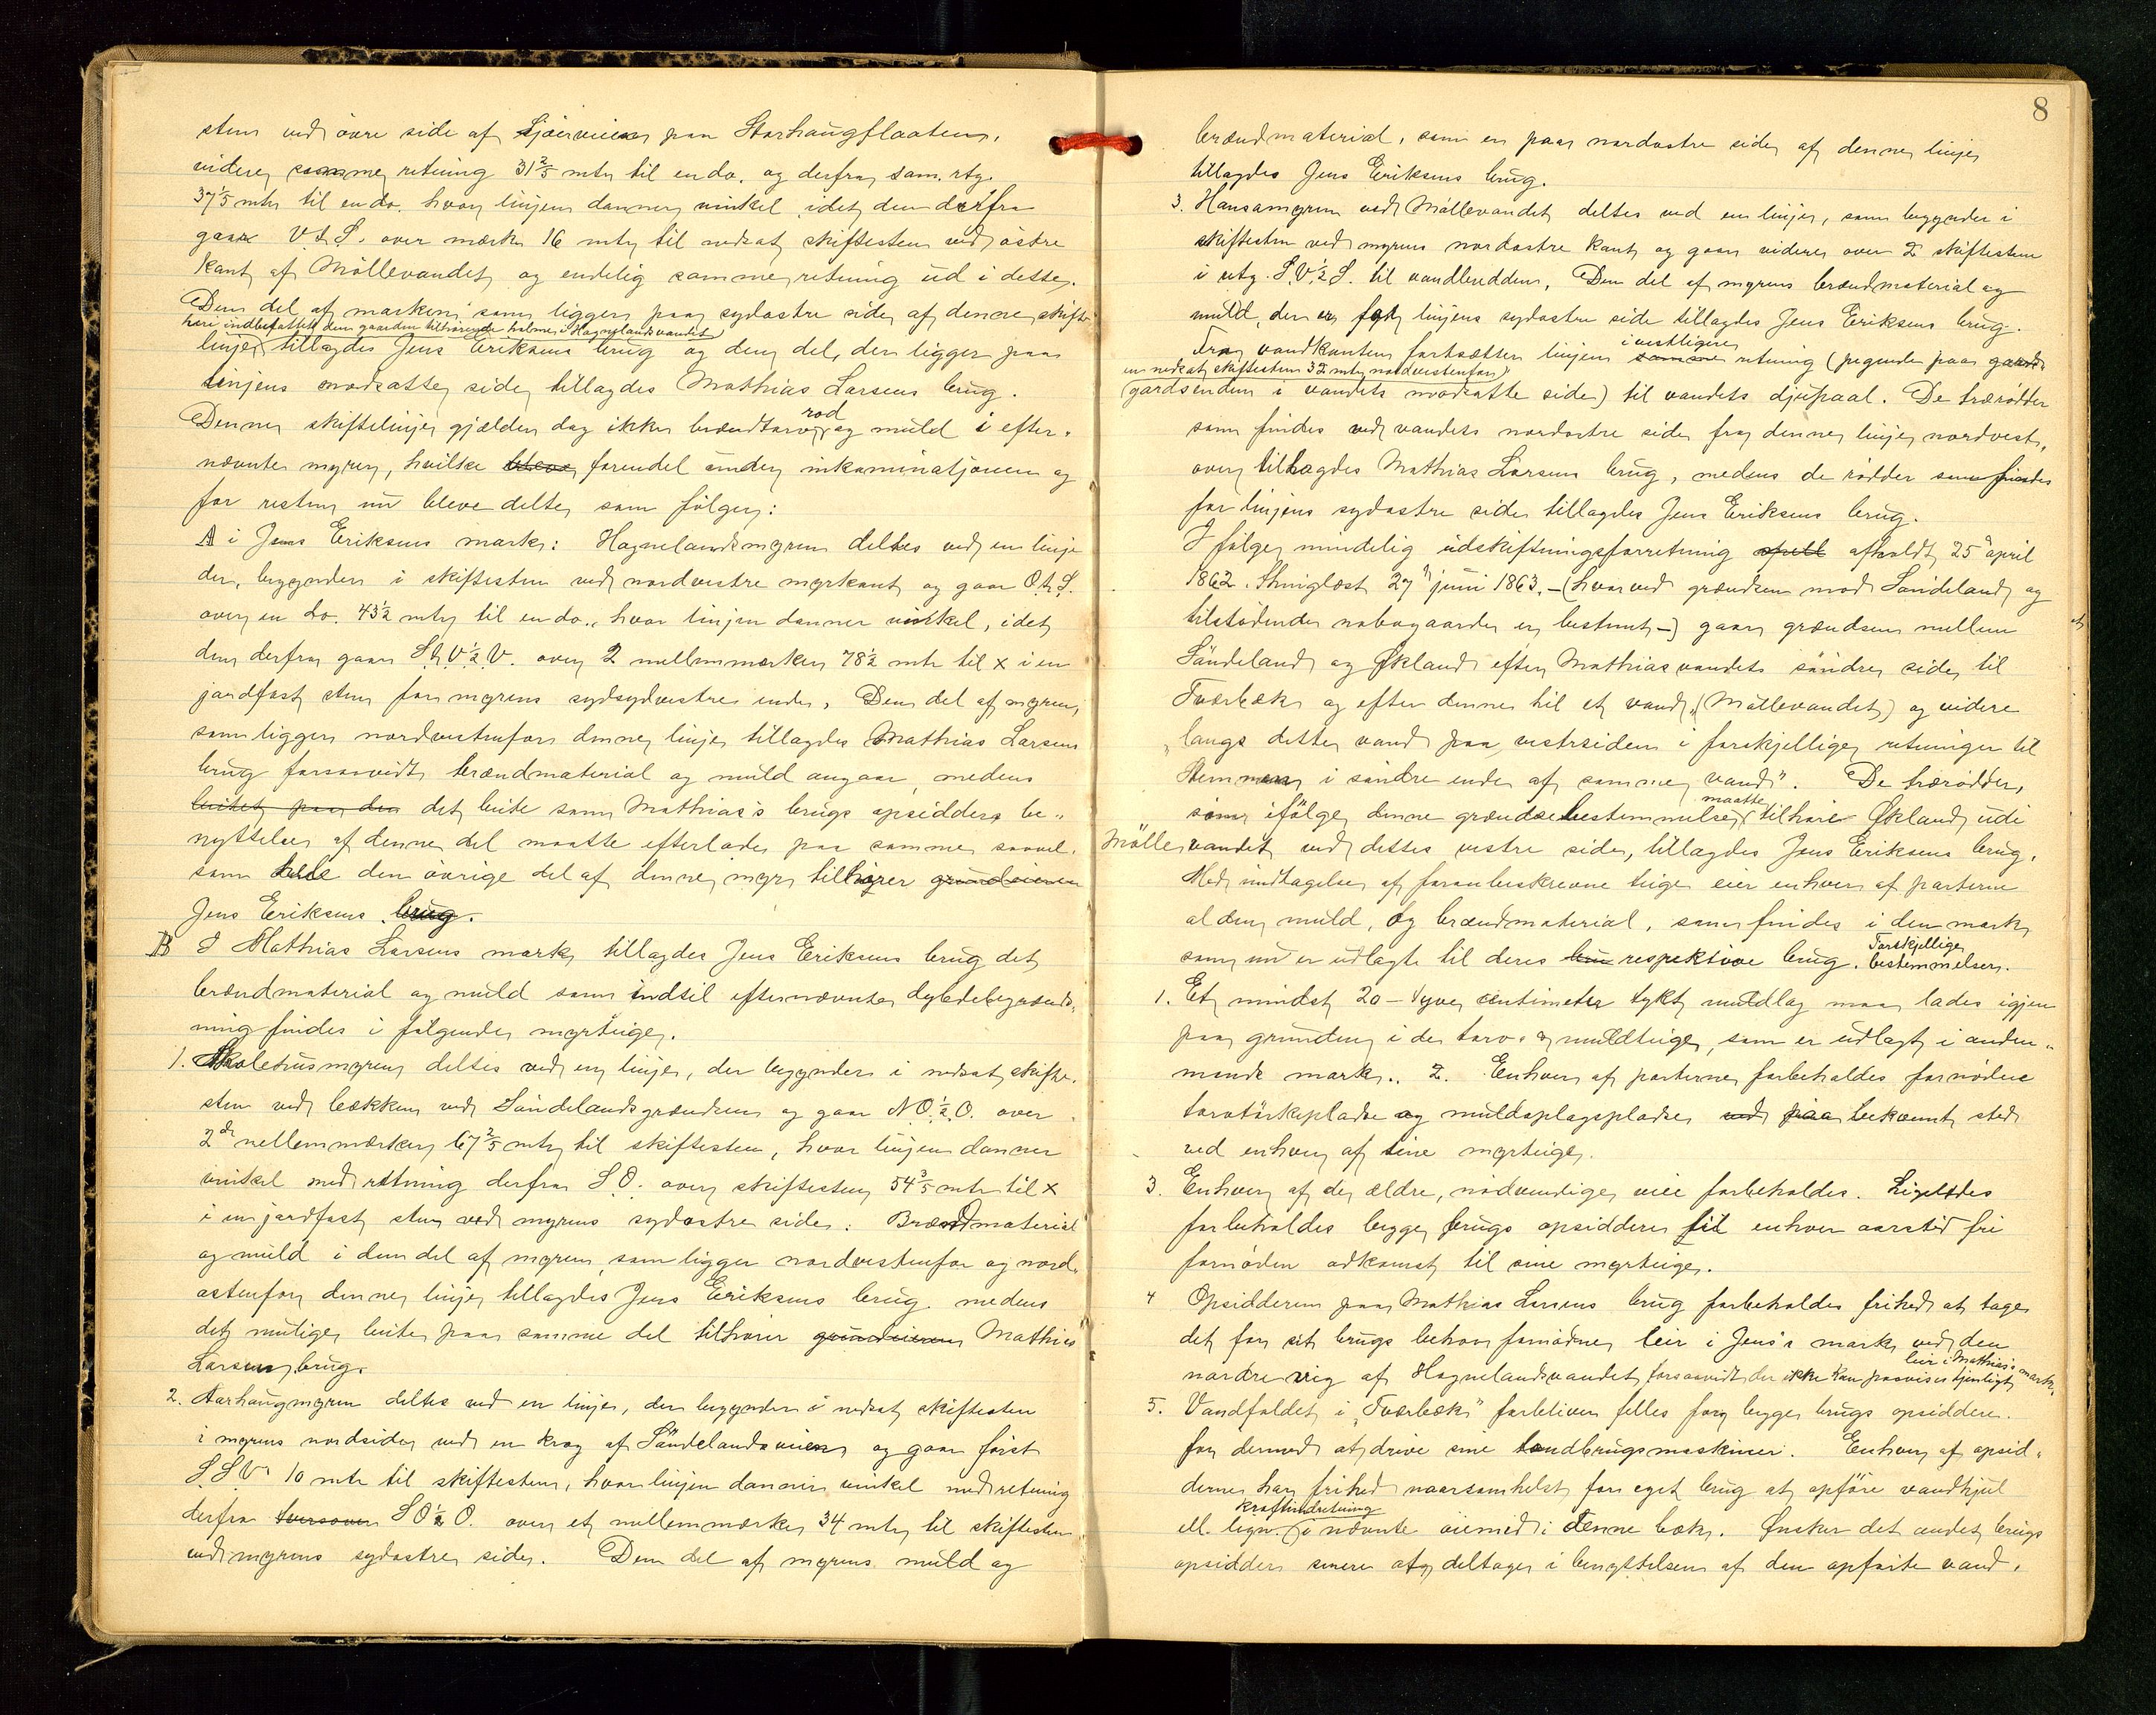 sten ved övre side af Sjöerveien paa Storhaugflaaten,
videre samme retning 31 2/5 mtr til en do. og derfra sam. rtg.
37 1/5 mtr til en do. hvor linjen danner vinkel idet den derfra
gaar V.t.S. over mærke 16 mtr til nedsat skiftesten ved östre
kant af Möllevandet og endelig samme retning ud i dette.
Den del af marken som ligger paa sydostre side af denne skifte-
heri indbefattet den gaarden tilhörende holme i Hognelandsvandet
linje tillagdes Jens Eriksens brug og den del, der ligger paa
linjens modsatte side tillagdes Mathias Larsens brug.
rod
Denne skiftelinje gjælder dog ikke brændtorv og muld i efter-
nævnte myrer, hvilke bleve forendel under inkaminationen og
for resten nu bleve delte som fölger:
A i Jens Eriksens mark: Hognelandsmyren deltes ved en linje
der, begynder i skiftesten ved nordvestre myrkant og gaar O.t.S.
over en do. 43 1/2 mtr til en do., hvor linjen danner vinkel, idet
den derfra gaar S.t.V.1/2 V. over 2 mellemmærker 78 1/2 mtr til x i en
jordfast sten for myrens sydsydvestre ende. Den del af myren,
som ligger nordvestenfor denne linje tillagdes Mathias Larsens
brug forsaavidt brændmaterial og muld angaar, medens
beitet paa den det beite som Mathias's brugs opsiddere be-
nyttelse af denne del maatte efterlade paa samme saavel-
som hele den övrige del af denne myr tilhörer grundeieren
Jens Eriksens brug.
B I Mathias Larsens mark tillagdes Jens Eriksens brug det
brændmaterial og muld som indtil efternævnte dybdebegrænds-
ning findes i fölgende myrteige.
1. Skolehusmyren deltes ved en linje, der begynder i nedsat skifte-
sten ved bækken ved Söndelandsgrændsen og gaar N.O.1/2 O. over
2de mellemmærker 67 2/5 mtr til skiftesten, hvor linjen danner
vinkel med retning derfra S.O. over skiftesten 54 3/5 mtr til x
i en jordfast sten ved myrens sydostre side. Brændmaterial
og muld i den del af myren, som ligger nordvestenfor og nord-
ostenfor denne linje tillagdes Jens Eriksens brug. medens
det mulige beite paa samme del tilhörer grundeieren Mathias
Larsens brug.
2. Aarhaugmyren deltes ved en linje, der begynder i nedsat skiftesten
i myrens nordside ved en krog af Söndelandsveien og gaar först
S.S.V. 10 mtr til skiftesten, hvor linjen danner vinkel med retning
derfra tversover S.O.1/2 O. over et mellemmærke 34 mtr til skiftesten
ved myrens sydostre side. Den del af myrens muld og
8
brændmaterial, som er paa nordostre side af denne linje
tillagdes Jens Eriksens brug.
3. Hansamyren ved Möllevandet deltes ved en linje, som begynder i
skiftesten ved myrens nordostre kant og gaar videre over 2 skiftesten
i rtg. S.V.1/2 S. til vandbredden. Den del af myrens brændmaterial og
muld, der er for linjens sydostre side tillagdes Jens Eriksens brug.
i vestligere
Fra vandkanten fortsætter linjen samme retning (pegende paa gards-
en nedsat skiftesten 32 mtr nordvestenfor
gardsenden i vandets modsatte side) til vandets djupaal. De trærödder
som findes ved vandets nordostre side fra denne linje nordvest-
over tillagdes Mathias Larsens brug, medens de rödder som findes
for linjens sydostre side tillagdes Jens Eriksens brug.
I fölge mindelig udskiftningsforretning afholdt 25 april
1862. Thinglæst 27 juni 1863. – (hvorved grændsen mod Söndeland og
tilstödende nabogaarder er bestemt –) gaar grændsen mellem
Söndeland og Økland efter Mathiasvandets söndre side til
Tværbæk og efter denne til et vand (Möllevandet) og videre
„langs dette vand paa vestsiden i forskjellige retninger til
Stemmen i söndre ende af samme vand". De trærödder,
maatte
som ifölge denne grændsebestemmelse tilhöre Økland udi
Möllevandet ved dettes vestre side, tillagdes Jens Eriksens brug.
Med undtagelse af foranbeskrevne teige eier enhver af parterne
al den muld, og brændmaterial, som findes i den mark
som nu er udlagte til deres respektive brug. Forskjellige bestemmelser.
1. Et mindst 20 – tyve centimeter tykt muldlag maa lades igjen
paa grunden i de torv- og muldteige, som er udlagt i anden-
mands mark.. 2. Enhver af parterne forbeholdes fornöden
torvtörkeplads og muldoplagsplads ved paa bekvemt sted
ved enhver af sine myrteige.
3. Enhver af de ældre, nödvendige veie forbeholdes. Ligeledes
forbeholdes begge brugs opsiddere til enhver aarstid fri
fornöden adkomst til sine myrteige.
4 Opsidderen paa Mathias Larsens brug forbeholdes frihed at tage
det for sit brugs behov fornödne leir i Jens's mark ved den
leir i Mathias's mark.
nordre vig af Hognelandsvandet forsaavidt der ikke kan paavises tjenligt
5. Vandfaldet i „Tværbæk" forbliver felles for begge brugs opsiddere.
for dermed at drive sine landbrugsmaskiner. Enhver af opsid-
derne har frihed naarsomhelst for eget brug at opföre vandhjul
kraftindretning
ell. lign. i nævnte öiemed i denne bæk. Ønsker det andet brugs
opsidder senere at deltage i benyttelsen af den opförte vand-